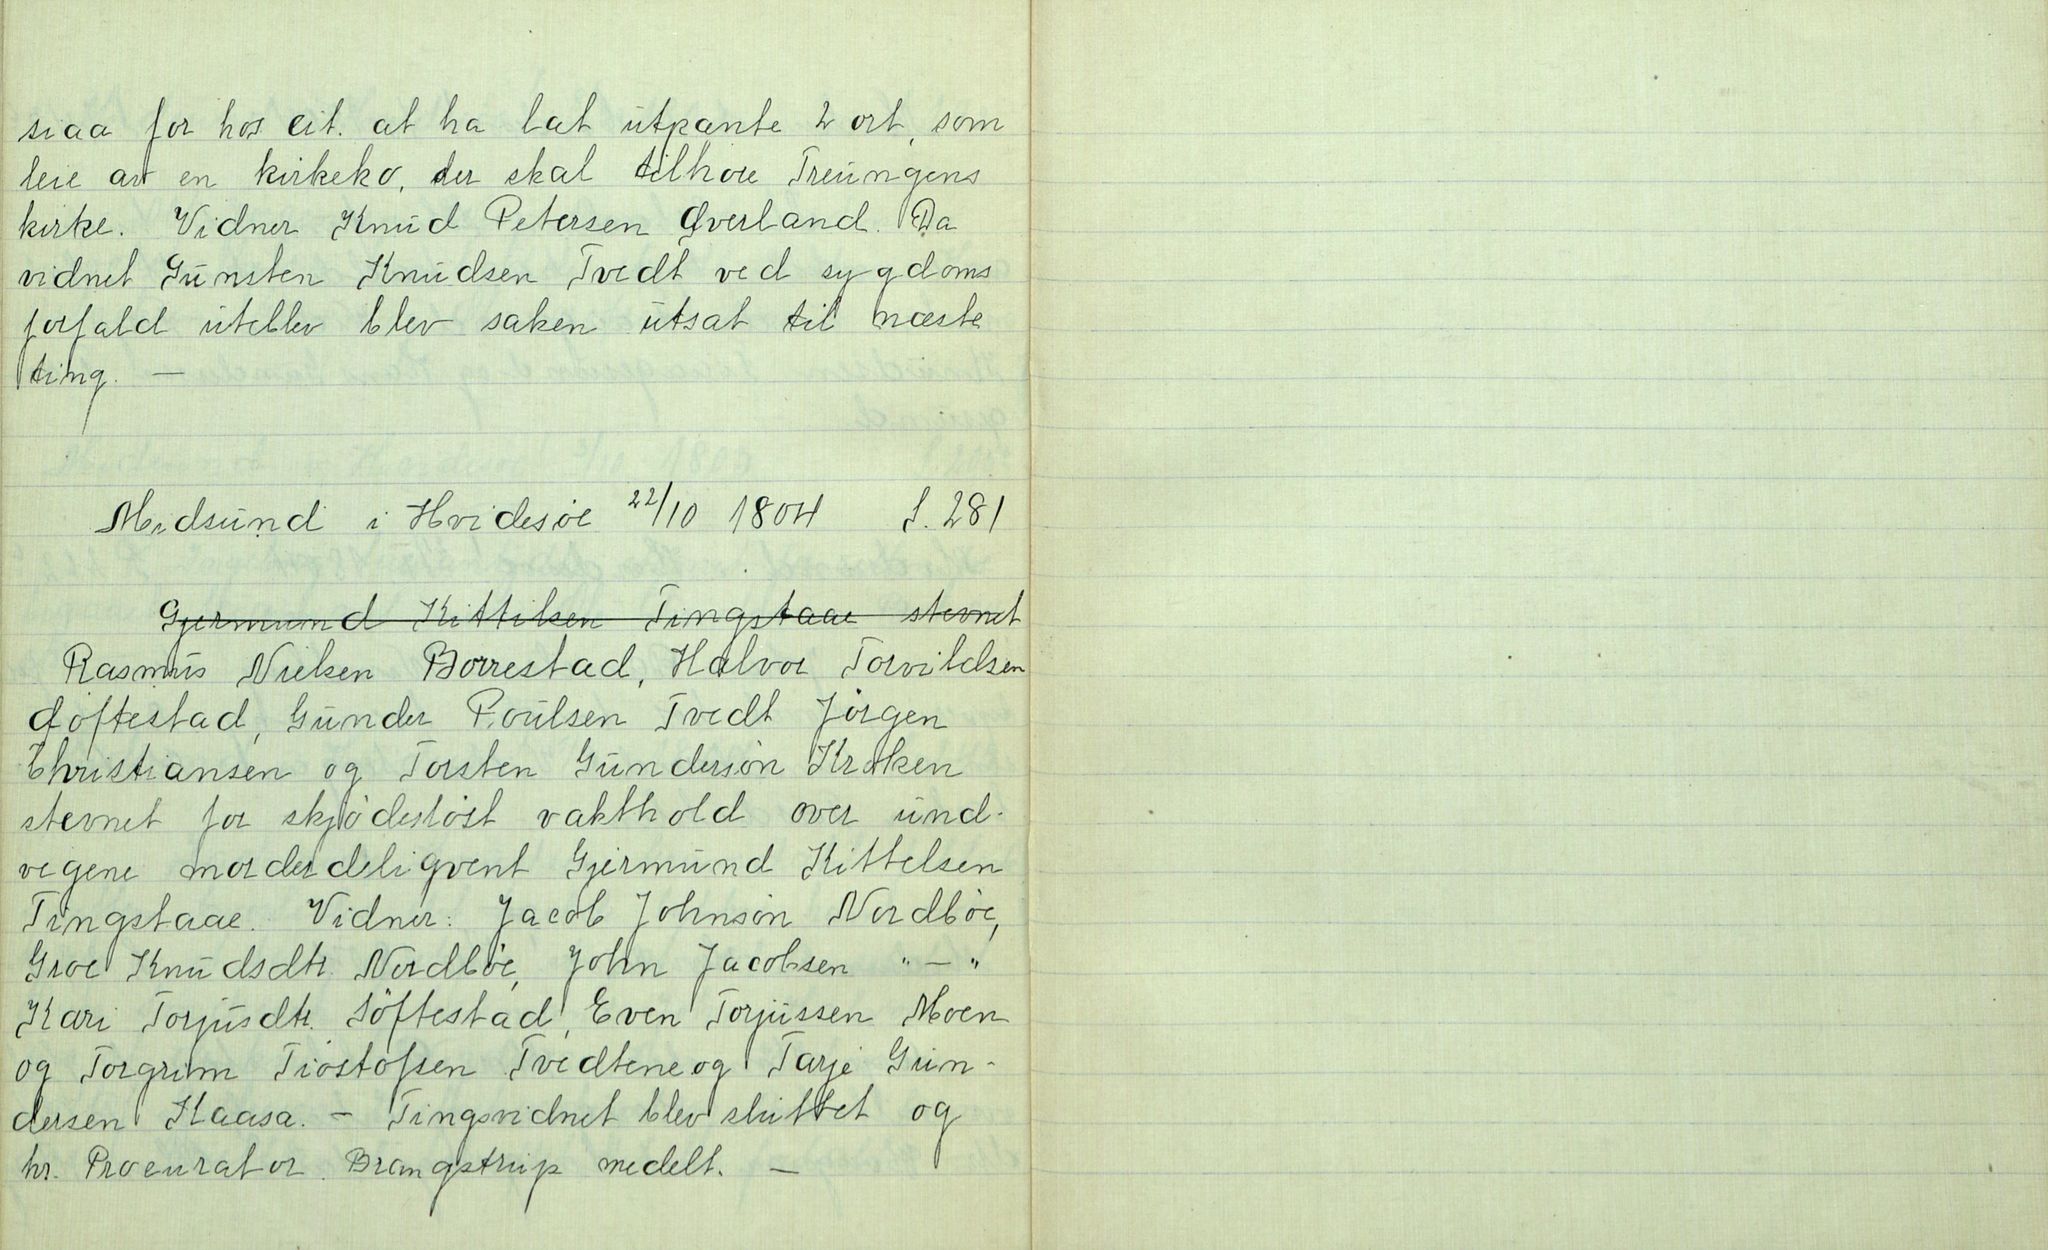 siaa for hos cit. at ha lat utpante 2 ort, som
leie av en kirkeko, der skal tilhøre Treungens
kirke. Vidner Knud Petersen Øverland. Da
vidnet Gunsten Knudsen Tvedt ved sygdoms
forfald uteblev blev saken utsat til næste
ting. —
Midsund i Hvidesøe 22/10 1804 S. 281
Gjermund Kittilsen Tingstaae stevnet
Rasmus Nielsen Borrestad, Halvor Torvildsen
Søftestad, Gunder Poulsen Tvedt Jørgen
Christiansen og Torsten Gundersøn Kroken
stevnet for skjødesløst vakthold over und-
vegene morderdeliqvent Gjermund Kittelsen
Tingstaae. Vidner: Jacob Johnsøn Nordbøe,
Groe Knudsdtr. Nordbøe, John Jacobsen " — "
Kari Torjusdtr. Söftestad, Even Torjussen Moen
og Torgrim Tiostofsen Tvedtene og Tarje Gun-
dersen Kaasa. — Tingsvidnet blev sluttet og
hr. Procurator Brangstrup medelt. —